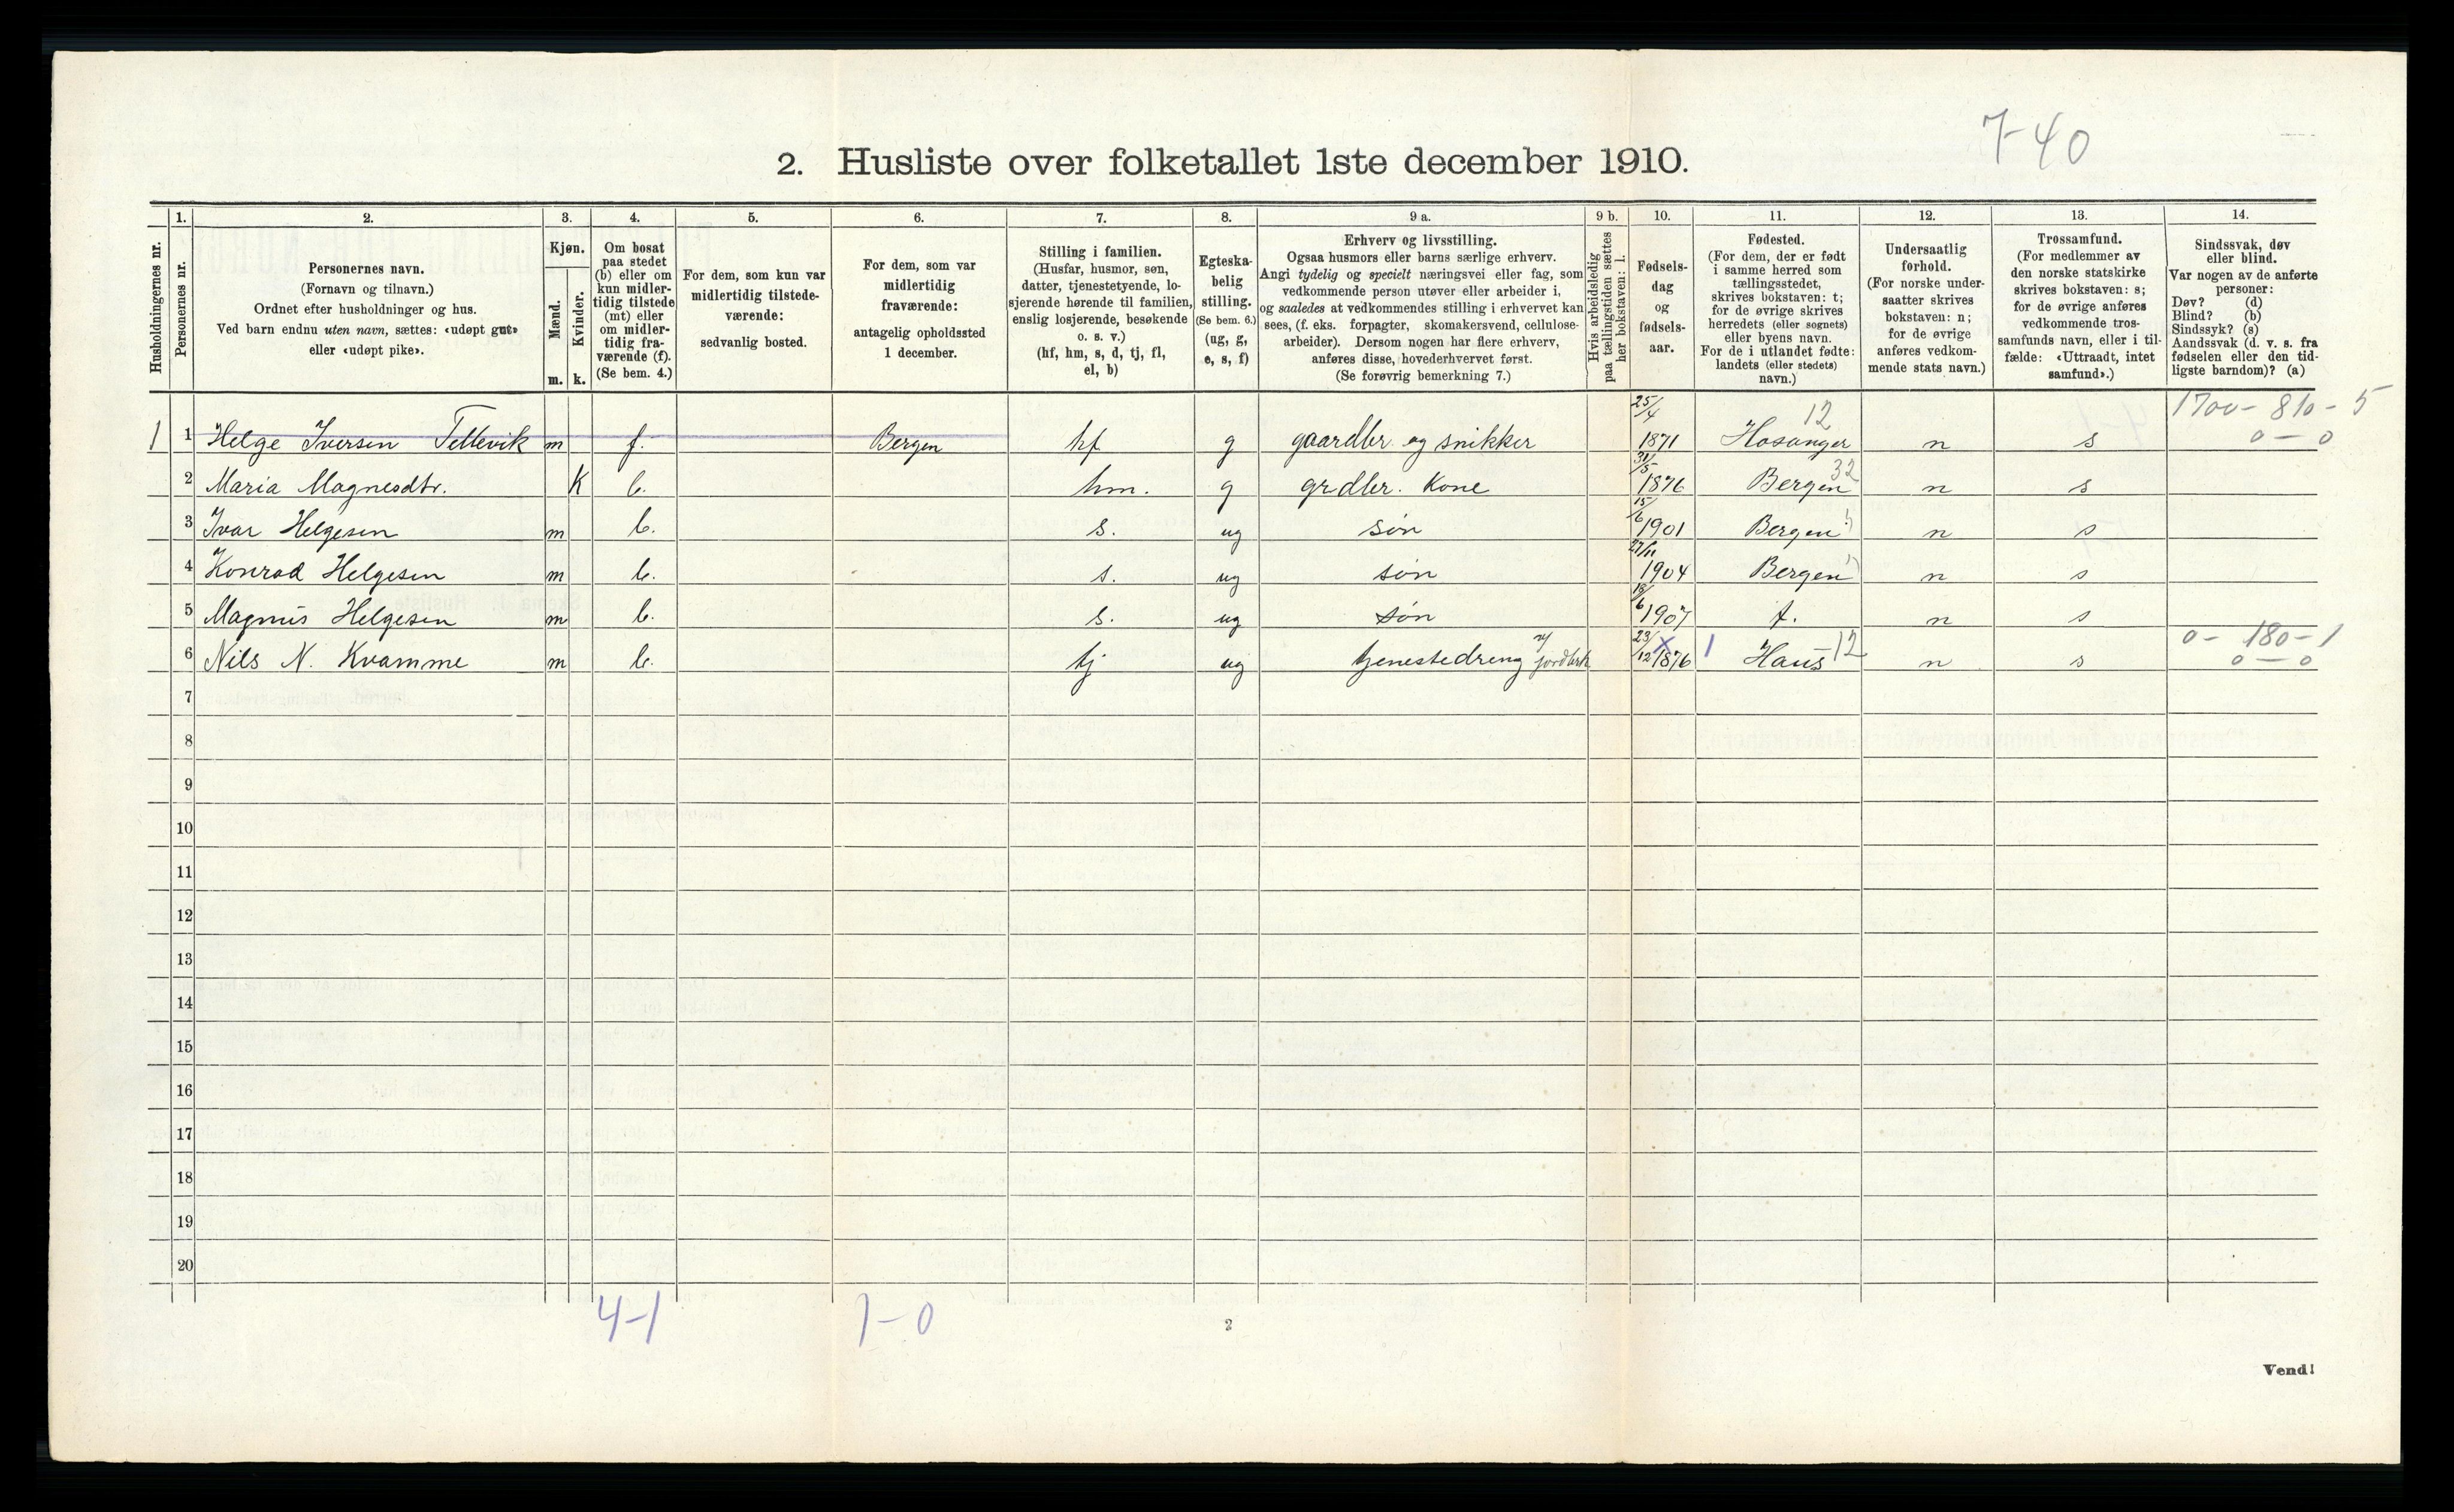 7-40
2. Husliste over folketallet 1ste december 1910.
Husholdningernes nr.
1. Personernes nr.
2. Personernes navn.
(Fornavn og tilnavn.)
Ordnet efter husholdninger og hus.
Ved barn endnu uten navn, sættes: «udøpt gut»
eller «udøpt pike».
3. Kjøn.
Mænd. m.
Kvinder. k.
4. Om bosat
paa stedet
(b) eller om
kun midler-
tidig tilstede
(mt) eller
om midler-
tidig fra-
værende (f).
(Se bem. 4.)
5. For dem, som kun var
midlertidig tilstede-
værende:
sedvanlig bosted.
6. For dem, som var
midlertidig
fraværende:
antagelig opholdssted
1 december.
7. Stilling i familien.
(Husfar, husmor, søn,
datter, tjenestetyende, lo-
sjerende hørende til familien,
enslig losjerende, besøkende
o. s. v.)
(hf, hm, s, d, tj, fl,
el, b)
8. Egteska-
belig
stilling.
(Se bem. 6.)
(ug, g,
e, s, f)
9 a. Erhverv og livsstilling.
Ogsaa husmors eller barns særlige erhverv.
Angi tydelig og specielt næringsvei eller fag, som
vedkommende person utøver eller arbeider i,
og saaledes at vedkommendes stilling i erhvervet kan
sees, (f. eks. forpagter, skomakersvend, cellulose-
arbeider). Dersom nogen har flere erhverv,
anføres disse, hovederhvervet først.
(Se forøvrig bemerkning 7.)
9 b. Hvis arbeidsledig
paa tællingstiden sættes
her bokstaven: l.
10. Fødsels-
dag
og
fødsels-
aar.
11. Fødested.
(For dem, der er født
i samme herred som
tællingsstedet,
skrives bokstaven: t;
for de øvrige skrives
herredets (eller sognets)
eller byens navn.
For de i utlandet fødte:
landets (eller stedets)
navn.)
12. Undersaatlig
forhold.
(For norske under-
saatter skrives
bokstaven: n;
for de øvrige
anføres vedkom-
mende stats navn.)
13. Trossamfund.
(For medlemmer av
den norske statskirke
skrives bokstaven: s;
for de øvrige anføres
vedkommende tros-
samfunds navn, eller i til-
fælde: «Uttraadt, intet
samfund».)
14. Sindssvak, døv
eller blind.
Var nogen av de anførte
personer:
Døv? (d)
Blind? (b)
Sindssyk? (s)
Aandssvak (d. v. s. fra
fødselen eller den tid-
ligste barndom)? (a)
1 1 Helge Iversen Tellevik m f. Bergen hf g gaardbr. og snikker 25/4 1871 12 Hosanger n s 1700-810-5 0-0
2 Maria Magnesdtr. K b. hm. g grdbr. Kone 31/5 1876 Bergen 32 n s
3 Ivar Helgesen m b. s. ug søn 15/6 1901 Bergen n s
4 Konrad Helgesen m b. s. ug søn 27/11 1904 Bergen n s
5 Magnus Helgesen m b. s. ug søn 1907 t. n s
6 Nils N. Kvamme m b. tj ug tjenestedreng v/ jordbrk 23/12 1876 x 1 Haus 12 n s 0-180-1 0-0
7
8
9
10
11
12
13
14
15
16
17
18
19
20
4-1 1-0
2
Vend!